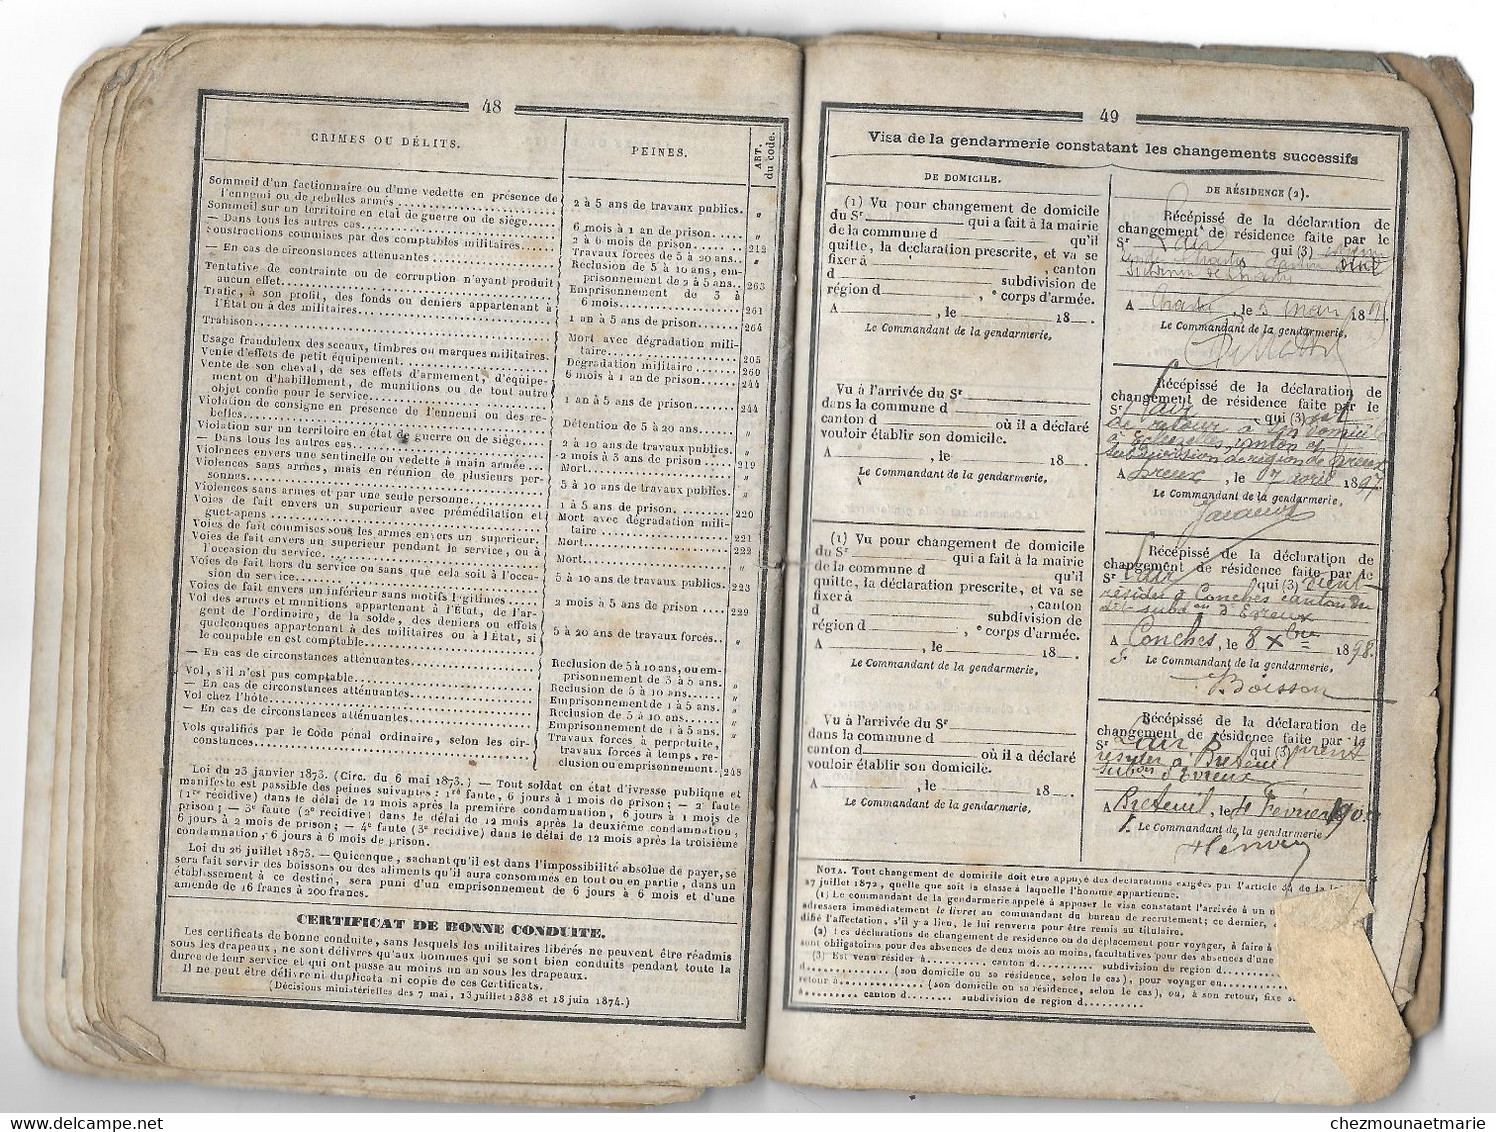 48
CRIMES OU DÉLITS.
PEINES.
ART. du code.
Sommeil d'un factionnaire ou d'une vedette en présence de
l'ennemi ou de rebelles armés
2 à 5 ans de travaux publics. "
Sommeil sur un territoire en état de guerre ou de siège
6 mois à 1 an de prison
— Dans tous les autres cas
2 à 6 mois de prison 212
Soustractions commises par des comptables militaires
Travaux forces de 5 à 20 ans "
— En cas de circonstances atténuantes
Reclusion de 5 à 10 ans, em-
prisonnement de 2 à 5 ans 263
Tentative de contrainte ou de corruption n'ayant produit
aucun effet
Emprisonnement de 3 à
6 mois 261
Trafic, à son profit, des fonds ou deniers appartenant à
l'État ou à des militaires
1 an à 5 ans de prison 264
Trahison
Mort avec dégradation mili-
taire 205
Usage frauduleux des sceaux, timbres ou marques militaires.
Dégradation militaire 260
Vente d'effets de petit équipement
6 mois à 1 an de prison 244
Vente de son cheval, de ses effets d'armement, d'équipe-
ment ou d'habillement, de munitions ou de tout autre
objet confié pour le service
1 an à 5 ans de prison 244
Violation de consigne en présence de l'ennemi ou des re-
belles
Détention de 5 à 20 ans "
Violation sur un territoire en état de guerre ou de siège
2 à 10 ans de travaux publics. "
— Dans tous les autres cas
2 mois à 3 ans de prison 219
Violences envers une sentinelle ou vedette à main armée
Mort "
Violences sans armes, mais en réunion de plusieurs per-
sonnes
5 à 10 ans de travaux publics. "
Violences sans armes et par une seule personne
1 à 5 ans de prison 220
Voies de fait envers un supérieur avec préméditation et
guet-apens
Mort avec dégradation mili-
taire 221
Voies de fait commises sous les armes envers un supérieur.
Mort 222
Voies de fait envers un supérieur pendant le service, ou à
l'occasion du service
Mort "
Voies de fait hors du service ou sans que cela soit à l'occa-
sion du service
5 à 10 ans de travaux publics. 223
Voies de fait envers un inférieur sans motifs légitimes
2 mois à 5 ans de prison 229
Vol des armes et munitions appartenant à l'État, de l'ar-
gent de l'ordinaire, de la solde, des deniers ou effets
quelconques appartenant à des militaires ou à l'État, si
le coupable en est comptable
5 à 20 ans de travaux forcés "
— En cas de circonstances atténuantes
Reclusion de 5 à 10 ans, ou em-
prisonnement de 3 à 5 ans. "
Vol, s'il n'est pas comptable
Reclusion de 5 à 10 ans "
— En cas de circonstances atténuantes
Emprisonnement de 1 à 5 ans. "
Vol chez l'hôte
Reclusion de 5 à 10 ans "
— En cas de circonstances atténuantes
Emprisonnement de 1 à 5 ans. "
Vols qualifiés par le Code pénal ordinaire, selon les cir-
constances
Travaux forces à perpétuité,
travaux forces à temps, re-
clusion ou emprisonnement 248
Loi du 23 janvier 1873. (Circ. du 6 mai 1873.) — Tout soldat en état d'ivresse publique et
manifeste est passible des peines suivantes : 1re faute, 6 jours à 1 mois de prison ; — 2e faute
(1re récidive) dans le délai de 12 mois après la première condamnation, 6 jours à 1 mois de
prison ; — 3e faute (2e recidive) dans le délai de 12 mois après la deuxième condamnation,
6 jours à 2 mois de prison ; — 4e faute (3e recidive) dans le délai de 12 mois après la troisième
condamnation, 6 jours à 6 mois de prison.
Loi du 26 juillet 1873. — Quiconque, sachant qu'il est dans l'impossibilité absolue de payer, se
sera fait servir des boissons ou des aliments qu'il aura consommés en tout ou en partie, dans un
établissement à ce destiné, sera puni d'un emprisonnement de 6 jours à 6 mois et d'une
amende de 16 francs à 200 francs.
CERTIFICAT DE BONNE CONDUITE.
Les certificats de bonne conduite, sans lesquels les militaires libérés ne peuvent être réadmis
sous les drapeaux, ne sont délivrés qu'aux hommes qui se sont bien conduits pendant toute la
durée de leur service et qui ont passé au moins un an sous les drapeaux.
Il ne peut être délivré ni duplicata ni copie de ces Certificats.
(Décisions ministérielles des 7 mai, 13 juillet 1838 et 18 juin 1874.)
49
Visa de la gendarmerie constatant les changements successifs
DE DOMICILE.
(1) Vu pour changement de domicile
du Sr qui a fait à la mairie
de la commune d qu'il
quitte, la déclaration prescrite, et va se
fixer à , canton
d subdivision de
région d , e corps d'armée.
A , le 18 .
Le Commandant de la gendarmerie,
Vu à l'arrivée du Sr
dans la commune d
canton d où il a déclaré
vouloir établir son domicile.
A , le 18 .
Le Commandant de la gendarmerie,
(1) Vu pour changement de domicile
du Sr qui a fait à la mairie
de la commune d qu'il
quitte, la déclaration prescrite, et va se
fixer à , canton
d subdivision de
région d , e corps d'armée.
A , le 18 .
Le Commandant de la gendarmerie,
Vu à l'arrivée du Sr
dans la commune d
canton d où il a déclaré
vouloir établir son domicile.
A , le 18 .
Le Commandant de la gendarmerie,
DE RÉSIDENCE (2).
Récépissé de la déclaration de
changement de résidence faite par le
Sr Lair qui (3)
A , le 5 mars 18
Le Commandant de la gendarmerie,
Récépissé de la déclaration de
changement de résidence faite par le
Sr Lair qui (3) est
de retour à son domicile
à canton et
subdivision de région de Dreux
A Dreux, le 17 avril 1897
Le Commandant de la gendarmerie,
Récépissé de la déclaration de
changement de résidence faite par le
Sr Lair qui (3) vient
résider à Conches canton du
dit subdon d'Evreux
A Conches, le 8 Xbre 1898.
Le Commandant de la gendarmerie,
Boisson
Récépissé de la déclaration de
changement de résidence faite par le
Sr Lair qui (3) vient
résider à Breteuil
subon d'Evreux
A Breteuil, le 4 Février 1900
Le Commandant de la gendarmerie
NOTA. Tout changement de domicile doit être appuyé des déclarations exigées par l'article 34 de la
27 juillet 1872, quelle que soit la classe à laquelle l'homme appartienne.
(1) Le commandant de la gendarmerie appelé à apposer le visa constatant l'arrivée à un
adressera immédiatement le livret au commandant du bureau de recrutement; ce dernier,
difié l'affectation, s'il y a lieu, le lui renverra pour être remis au titulaire.
(2) Les déclarations de changement de résidence ou de déplacement pour voyager, à faire à
sont obligatoires pour des absences de deux mois au moins, facultatives pour des absences d'une
(3) Est venu résider à canton d subdivision de region d
d (son domicile ou sa résidence, selon le cas), pour voyager en
retour à (son domicile ou sa résidence, selon le cas), ou, à son retour, fixe
à canton d subdivision de région d
chezmounaetmarie